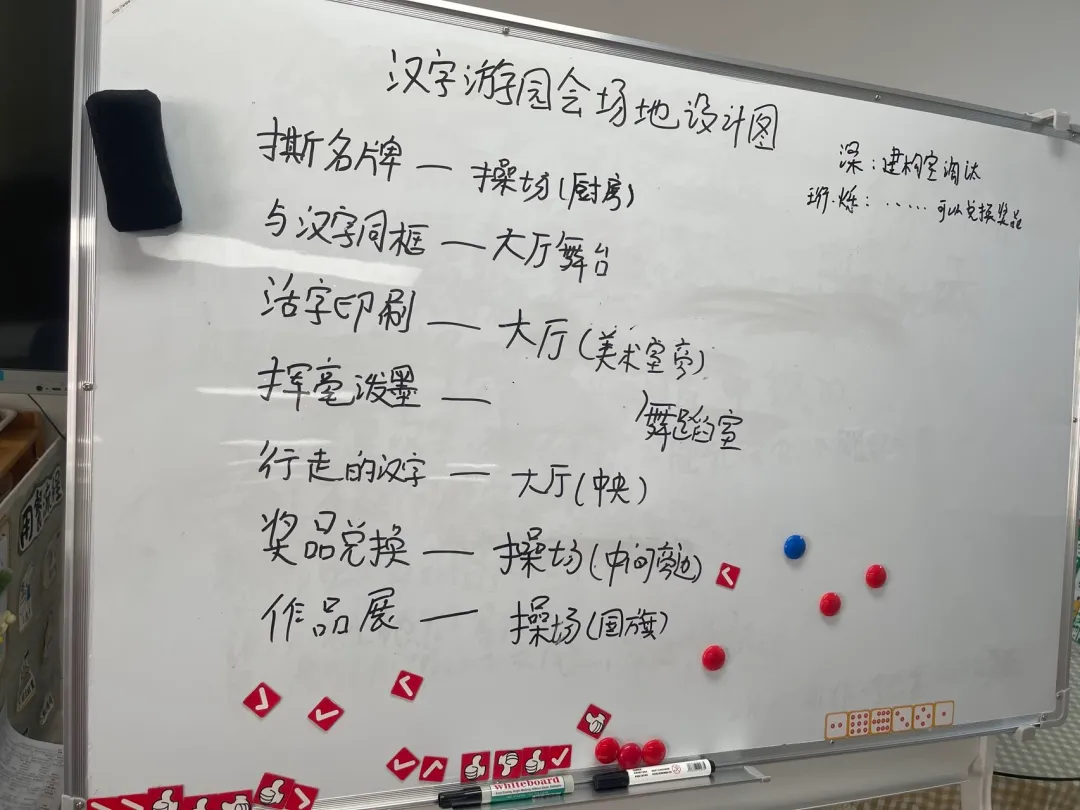 汉字游园会场地设计图
撕名牌 — 操场(厨房)
与汉字同框 — 大厅舞台
活字印刷 — 大厅(美术室旁)
挥毫泼墨 — 舞蹈室
行走的汉字 — 大厅(中央)
奖品兑换 — 操场(中间旁边)
作品展 — 操场(国旗)
深:建构室淘汰
珩.烁:......可以兑换奖品
whiteboard